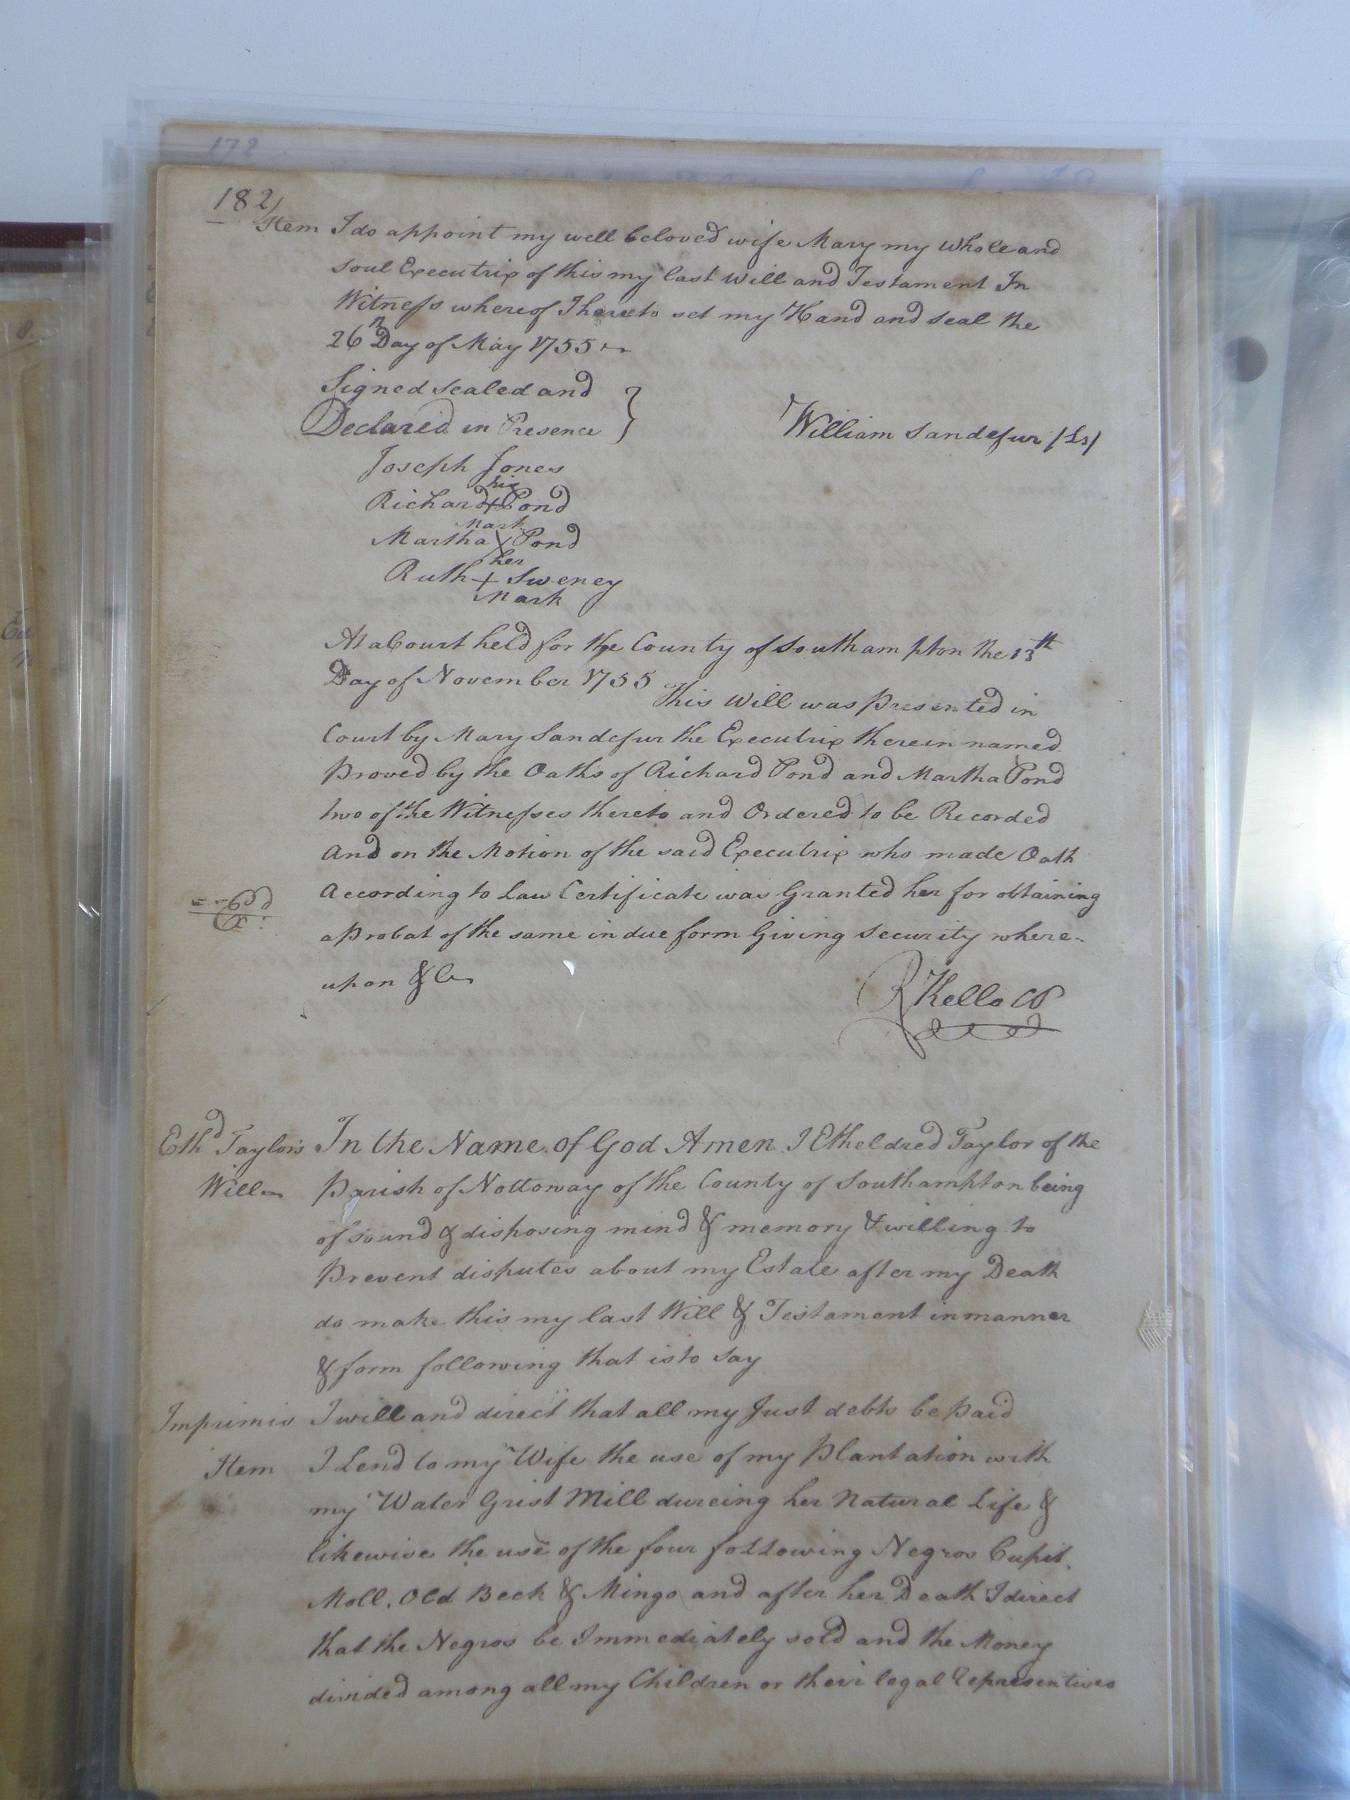 172
182
Item I do appoint my well beloved wife Mary my whole and
soul Executrix of this my last will and Testament In
Witness whereof I hereto set my Hand and seal the
26th Day of May 1755
Signed sealed and
Declared in Presence }
William Sandefur /Ls/
Joseph Jones
his
Richard + Pond
mark
Martha X Pond
her
Ruth + Sweney
Mark
At a Court held for the County of Southampton the 13th
Day of November 1755
This Will was presented in
Court by Mary Sandefur the Executrix therein named
Proved by the Oaths of Richard Pond and Martha Pond
two of the Witnesses thereto and Ordered to be Recorded
And on the Motion of the said Executrix who made Oath
According to Law Certificate was Granted her for obtaining
a Probat of the same in due form Giving Security where-
upon &c
Ex:
R Kello CC
Ethd Taylors
Will
In the Name of God Amen I Etheldred Taylor of the
Parish of Nottoway of the County of Southampton being
of sound & disposing mind & memory & willing to
Prevent disputes about my Estate after my Death
do make this my last Will & Testament in manner
& form following that is to say
Imprimis I will and direct that all my Just debts be paid
Item I Lend to my Wife the use of my plantation with
my Water Grist Mill dureing her Natural Life &
likewise the use of the four following Negros Cupit.
Moll. Old Beck & Mingo and after her Death I direct
that the Negros be Immediately sold and the Money
divided among all my Children or their legal Representives